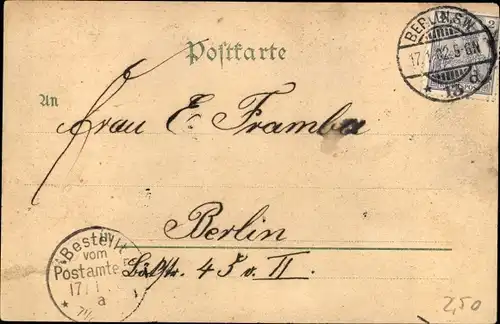 Postkarte
BERLIN, S.W.
17.1.02.5-6N
* 13 d
An
Frau E. Framba
Berlin
45 v. II
Bestellt
vom
Postamte
17/1
a
2,50